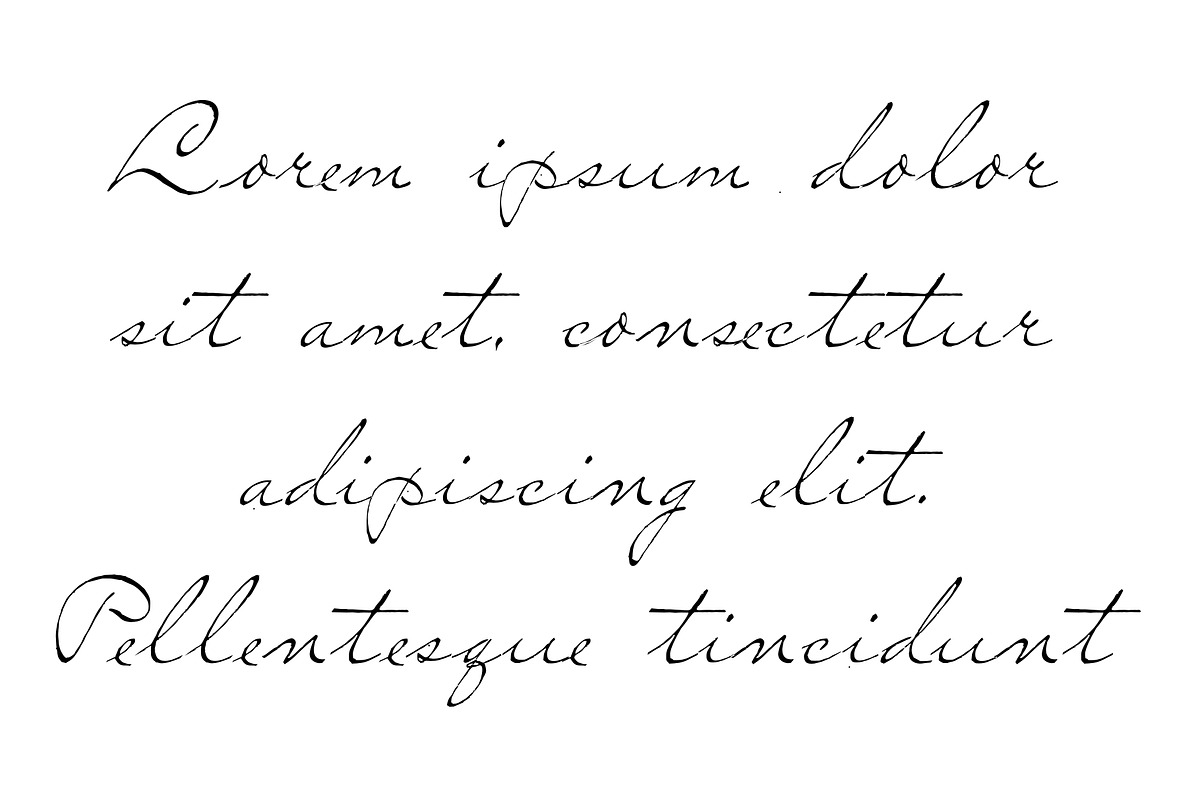 Lorem ipsum dolor
sit amet, consectetur
adipiscing elit.
Pellentesque tincidunt